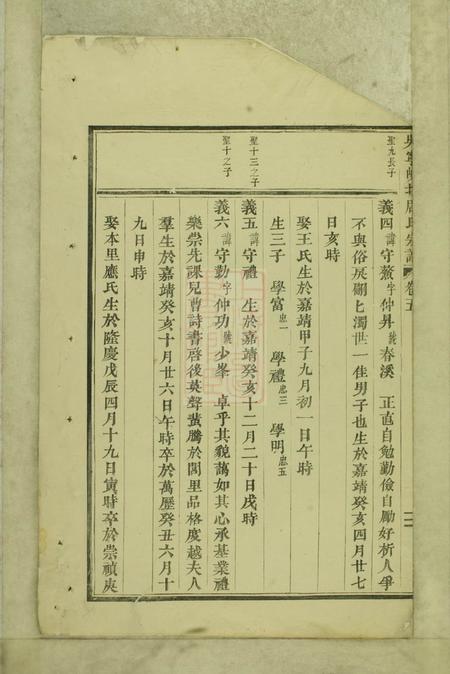 周氏宗譜 卷五
聖九長子
義四 諱守嚴字仲昇號春溪 正直自勉勤儉自勵好析人爭
不與俗戾砌匕濁世一佳男子也生於嘉靖癸亥四月廿七
日亥時
娶王氏生於嘉靖甲子九月初一日午時
生三子 學富忠一 學禮忠三 學明忠五
聖十三之子
義五 諱守禮 生於嘉靖癸亥十二月二十日戌時
聖十之子
義六 諱守勤字仲功號少峯 卓乎其貌藹如其心承基業禮
樂崇先課兒曹詩書啓後英聲蜚騰於閭里品格度越夫人
羣生於嘉靖癸亥十月廿六日午時卒於萬歷癸丑六月十
九日申時
娶本里應氏生於隆慶戊辰四月十九日寅時卒於崇禎庚